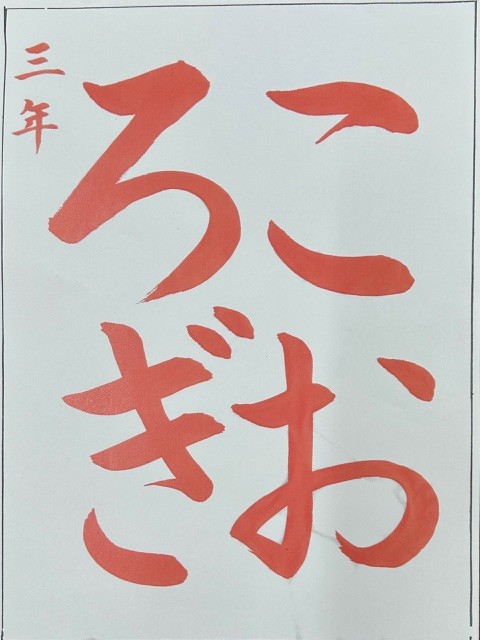 こお
ろぎ
三年